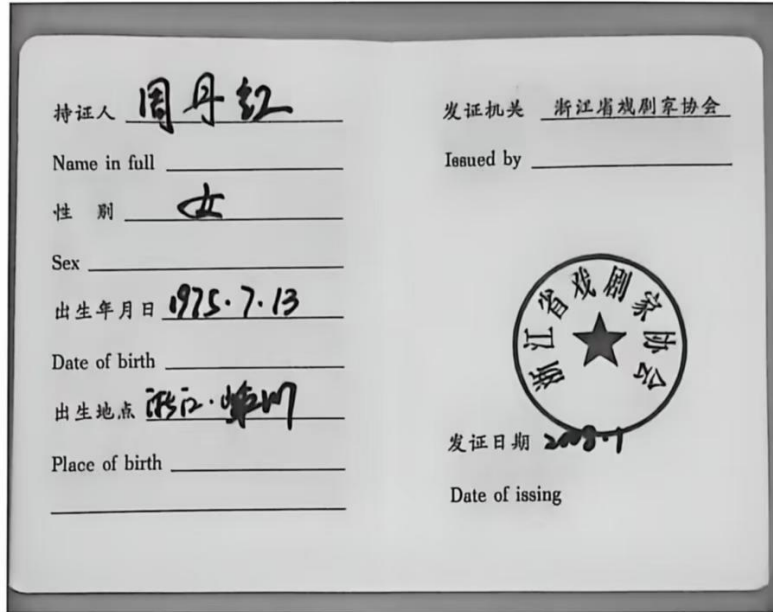 持证人 周丹红
Name in full
性 别 女
Sex
出生年月日 1975.7.13
Date of birth
出生地点 浙江·嵊州
Place of birth
发证机关 浙江省戏剧家协会
Issued by
浙江省戏剧家协会
发证日期 2008.1
Date of issing